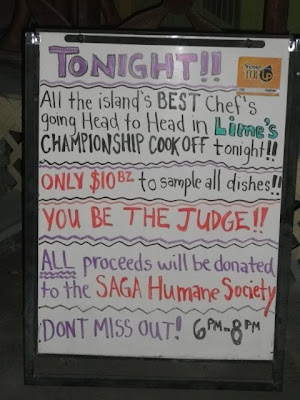 TONIGHT!!
All the island's BEST Chef's
going Head to Head in Lime's
CHAMPIONSHIP COOK OFF tonight!!
ONLY $10BZ to sample all dishes!!
YOU BE THE JUDGE!!
ALL proceeds will be donated
to the SAGA Humane Society
DONT MISS OUT! 6PM-8PM